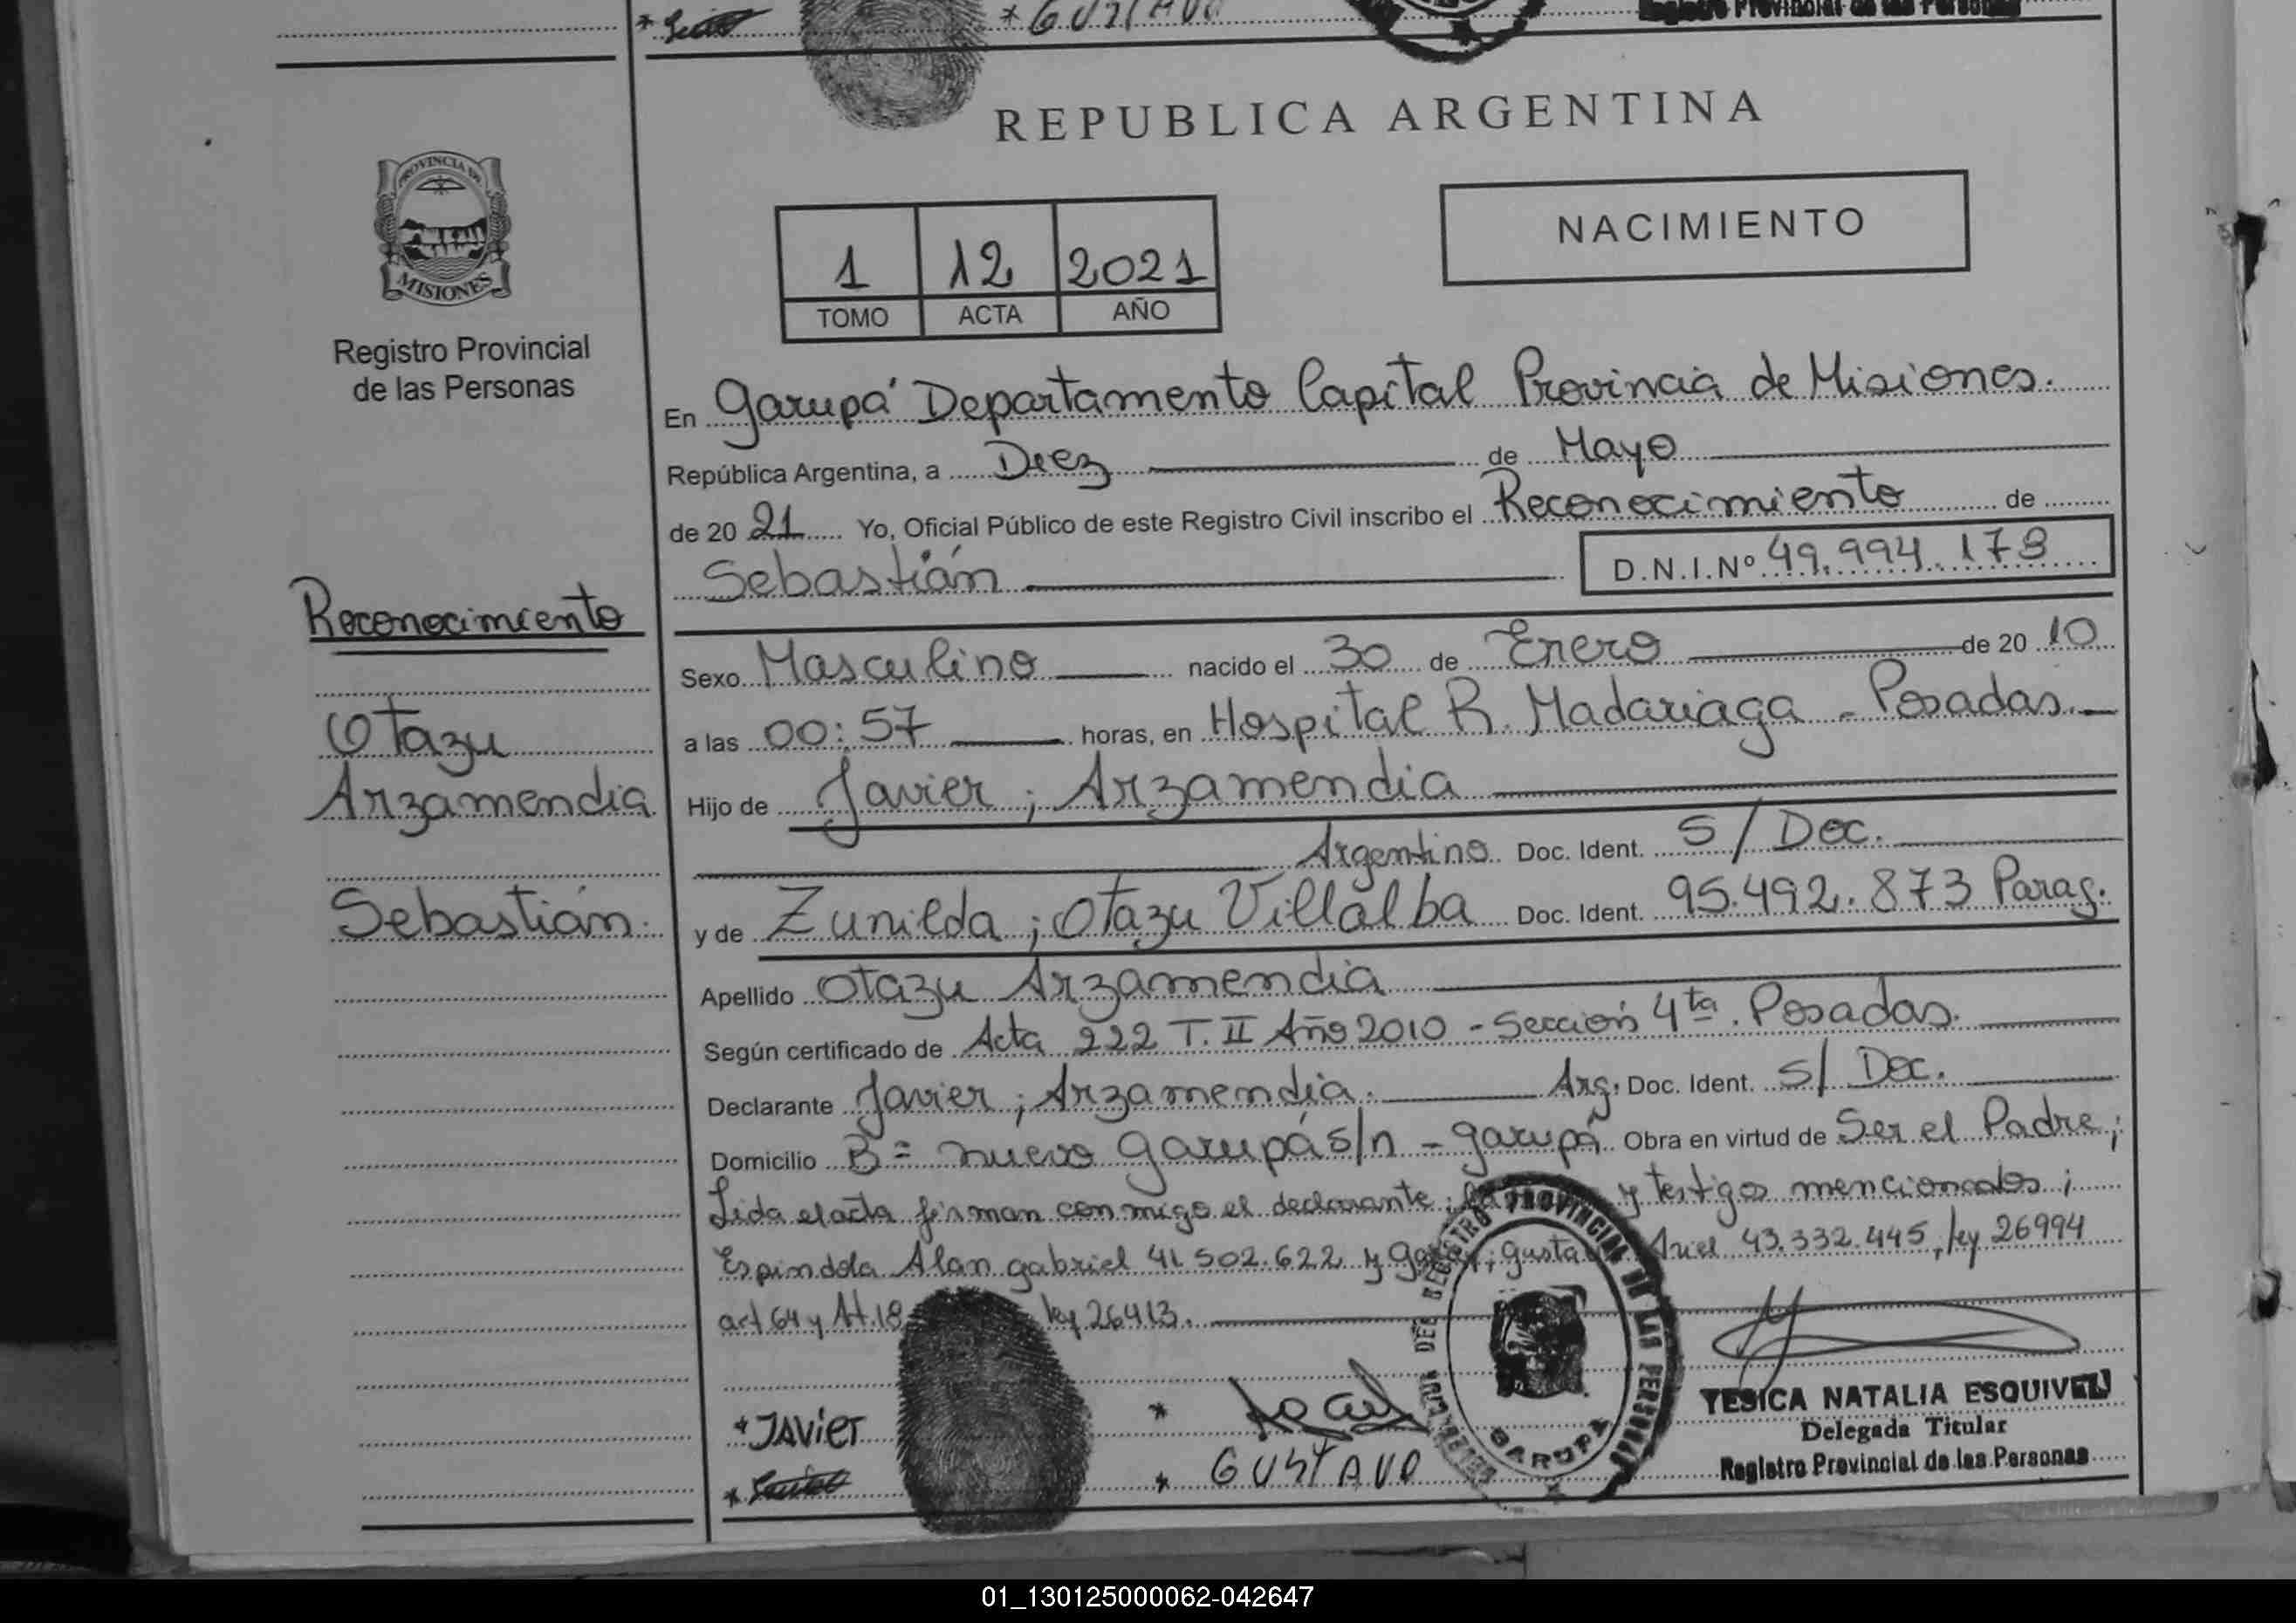 * GUSTAVO
Registro Provincial de las Personas
REPUBLICA ARGENTINA
PROVINCIA DE
MISIONES
Registro Provincial
de las Personas
NACIMIENTO
1 12 2021
TOMO ACTA AÑO
En Garupá Departamento Capital Provincia de Misiones.
República Argentina, a Diez de Mayo
de 20 21 Yo, Oficial Público de este Registro Civil inscribo el Reconocimiento de
Sebastián D.N.I.Nº 49.994.178
Reconocimiento
Otazu
Arzamendia
Sebastián.
Sexo Masculino nacido el 30 de Enero de 20 10
a las 00:57 horas, en Hospital R. Madariaga - Posadas.
Hijo de Javier ; Arzamendia
Argentino Doc. Ident. S/Doc.
y de Zunilda ; Otazu Villalba Doc. Ident. 95.492.873 Parag.
Apellido Otazu Arzamendia
Según certificado de Acta 222 T. II Año 2010 - Sección 4ta. Posadas.
Declarante Javier ; Arzamendia. Arg. Doc. Ident. S/ Doc.
Domicilio Bº nuevo Garupá s/n - Garupá Obra en virtud de Ser el Padre ;
Lida el acta firman conmigo el declarante ; y testigos mencionados ;
Espindola Alan Gabriel 41 502.622 y Ariel 43.332.445, ley 26994
art 64 y At. 18 ley 26413.
* JAVIER
*
* GUSTAVO
REGISTRO PROVINCIAL DE LAS PERSONAS
GARUPA
YESICA NATALIA ESQUIVEL
Delegada Titular
Registro Provincial de las Personas
01_130125000062-042647